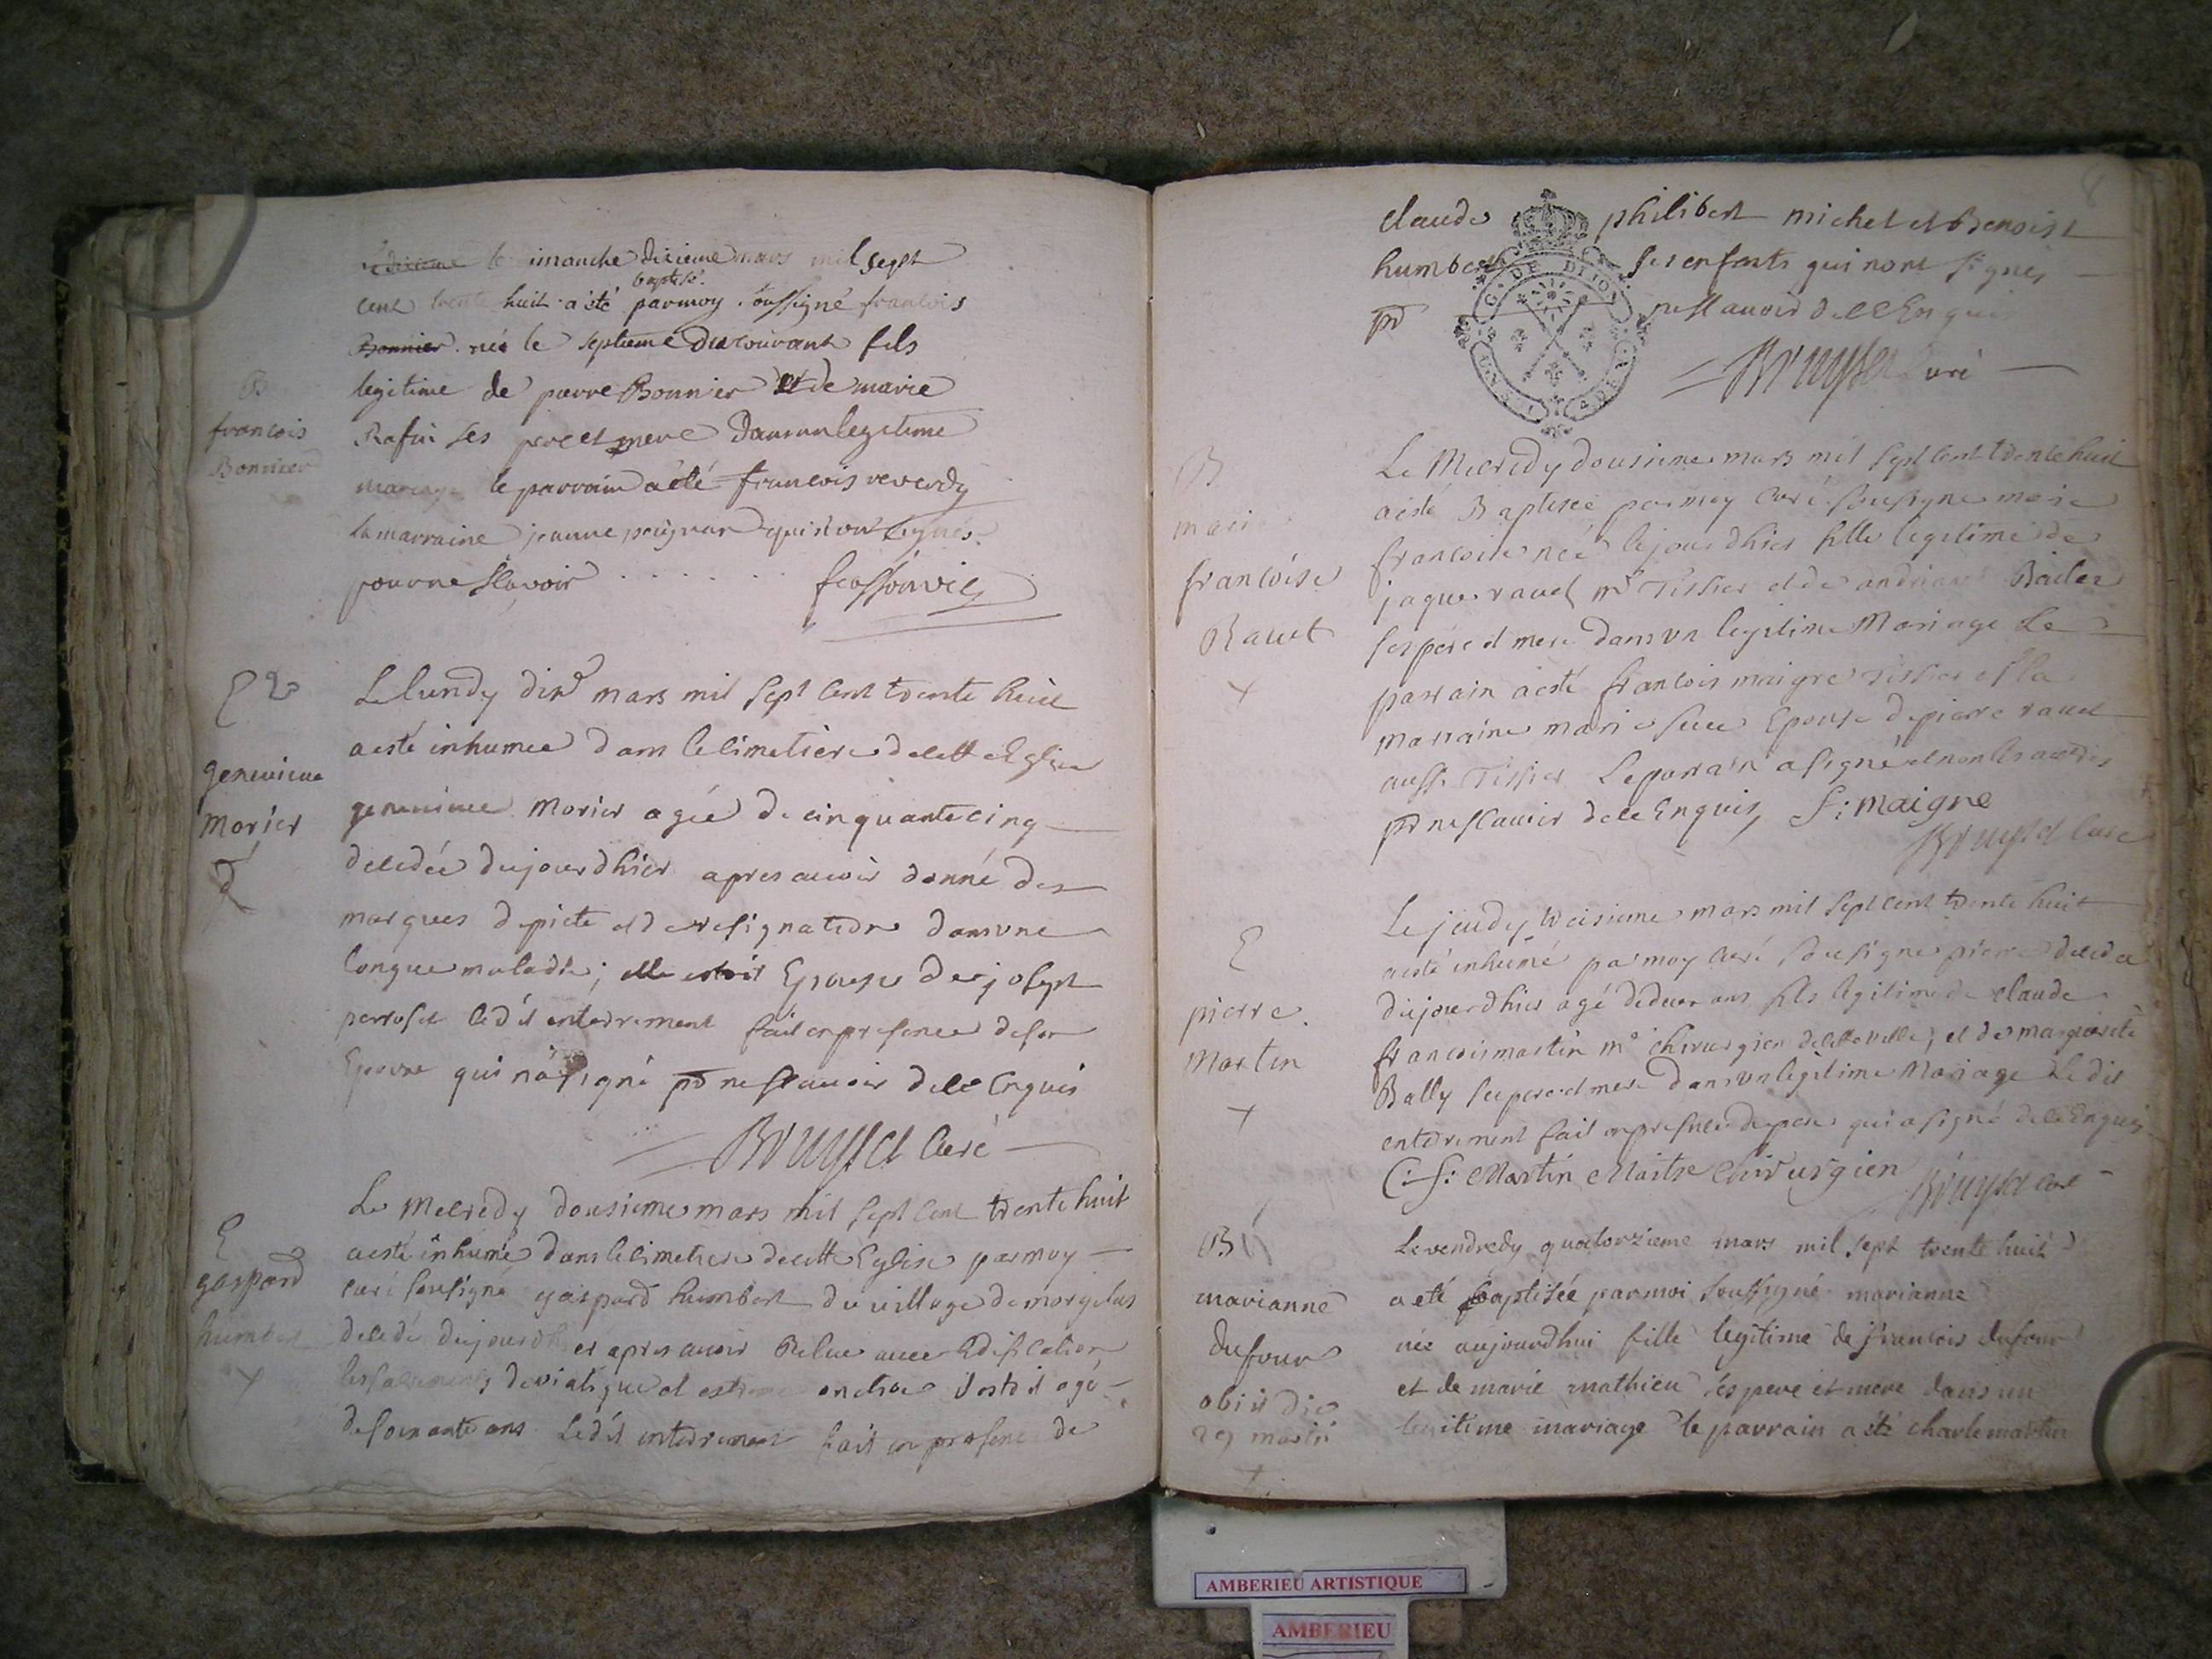 le dimanche dixieme mars mil sept
baptisé
cent trente huit a été parmoy soussigné francois
Bonnier né le septieme du courant fils
legitime de pierre Bonnier et de marie
ses pere et mere dans un legitime
mariage le parrain a été francois reverdy
la marraine jeanne qui n'ont signés
pour ne sçavoir
B
francois
Bonnier
Le lundy dixe mars mil sept cent trente huit
a esté inhumee dans le cimetiere de cette Eglise
genevieve Morier agée de cinquante cinq
decedée du jourdhier apres avoir donné des
marques de pieté et de resignation dans une
longue maladie; elle estoit Epouse de joseph
perroset ledit enterrement fait en presence de son
Epoux qui n'a signé pr ne sçavoir de ce Enquis
Bruyset Curé
E
genevieve
Morier
Le Mecredy dousieme mars mil sept cent trente huit
a esté inhumé dans le cimetiere de cette Eglise par moy
curé sousigné gaspard humbert du village de morgelas
decedé du jourdhier apres avoir Receu avec Edification
les sacrements de viatique et extreme onction il estoit agé
de soixante ans Ledit enterrement fait en presence de
E
gaspard
humbert
claude philibert michel et Benoist
humbert ses enfants qui n'ont signés
pr ne sçavoir de ce Enquis
Bruyset Curé
G. DE DIJON
Le Mecredy dousieme mars mil sept cent trente huit
a esté Baptisée par moy Curé sousigné marie
francoise neé le jourdhier fille legitime de
jaques ravet me Tissier et de andriane
ses pere et mere dans un legitime Mariage Le
parrain a esté francois maigre Tissier et la
marraine marie Epouse de pierre ravet
aussi Tissier Le parrain a signé et non les autres
pr ne sçavoir de ce Enquis f: maigne
Bruyset Curé
B
marie
francoise
Ravet
Le jeudy treisieme mars mil sept cent trente huit
a esté inhumé par moy Curé sousigné pierre decedé
du jourdhier agé de deux ans fils legitime de claude
francois martin me chirurgien de cette ville, et de marguerite
Bally ses pere et mere dans un legitime Mariage Ledit
enterrement fait en presence du pere qui a signé de ce Enquis
C: f: Martin Maitre Chirurgien Bruyset Curé
E
pierre
Martin
Le vendredy quatorzieme mars mil sept trente huit
a eté baptisée par moi soussigné marianne
née aujourdhui fille legitime de francois dufour
et de marie mathieu ses pere et mere dans un
legitime mariage le parrain a été charle martin
B
marianne
dufour
obiit die
29 martii
AMBERIEU ARTISTIQUE
AMBERIEU